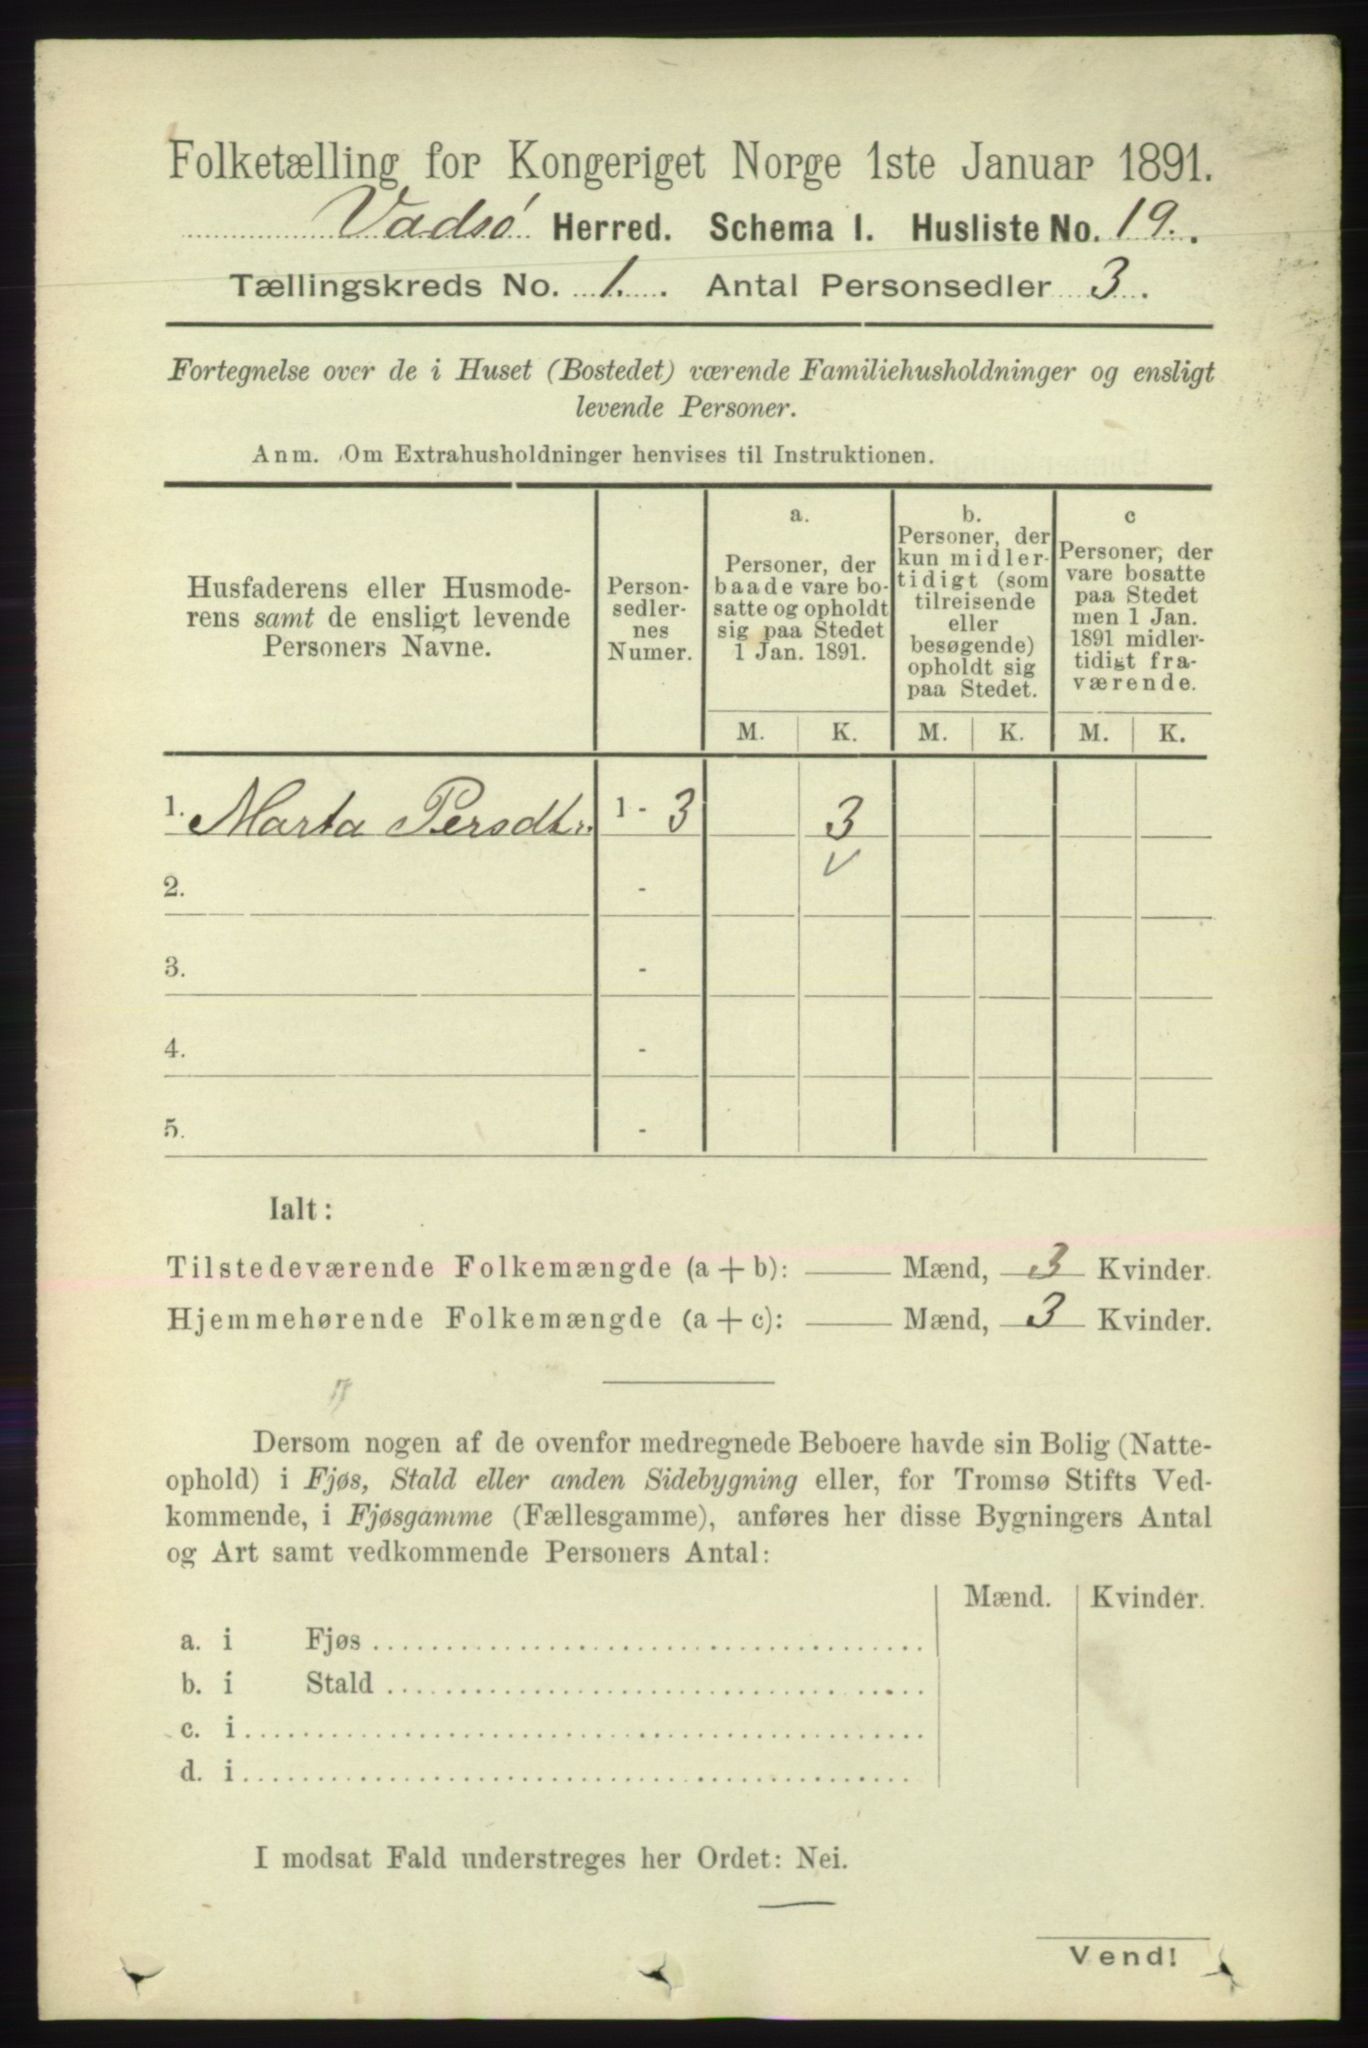 Folketælling for Kongeriget Norge 1ste Januar 1891.
Vadsø Herred. Schema I. Husliste No. 19.
Tællingskreds No. 1. Antal Personsedler 3.
Fortegnelse over de i Huset (Bostedet) værende Familiehusholdninger og ensligt
levende Personer.
Anm. Om Extrahusholdninger henvises til Instruktionen.
Husfaderens eller Husmode-
rens samt de ensligt levende
Personers Navne.
Person-
sedler-
nes
Numer.
a.
Personer, der
baade vare bo-
satte og opholdt
sig paa Stedet
1 Jan. 1891.
b.
Personer, der
kun midler-
tidigt (som
tilreisende
eller
besøgende)
opholdt sig
paa Stedet.
c
Personer, der
vare bosatte
paa Stedet
men 1 Jan.
1891 midler-
tidigt fra-
værende.
M. K. M. K. M. K.
1. Marta Persdtr. 1 - 3 3
2. -
3. -
4. -
5. -
Ialt:
Tilstedeværende Folkemængde (a + b): Mænd, 3 Kvinder.
Hjemmehørende Folkemængde (a + c): Mænd, 3 Kvinder.
Dersom nogen af de ovenfor medregnede Beboere havde sin Bolig (Natte-
ophold) i Fjøs, Stald eller anden Sidebygning eller, for Tromsø Stifts Ved-
kommende, i Fjøsgamme (Fællesgamme), anføres her disse Bygningers Antal
og Art samt vedkommende Personers Antal:
Mænd. Kvinder.
a. i Fjøs
b. i Stald
c. i
d. i
I modsat Fald understreges her Ordet: Nei.
Vend!